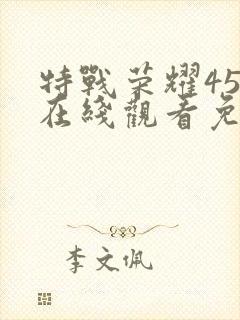 特戰荣耀45
在綫觀看免
李文佩